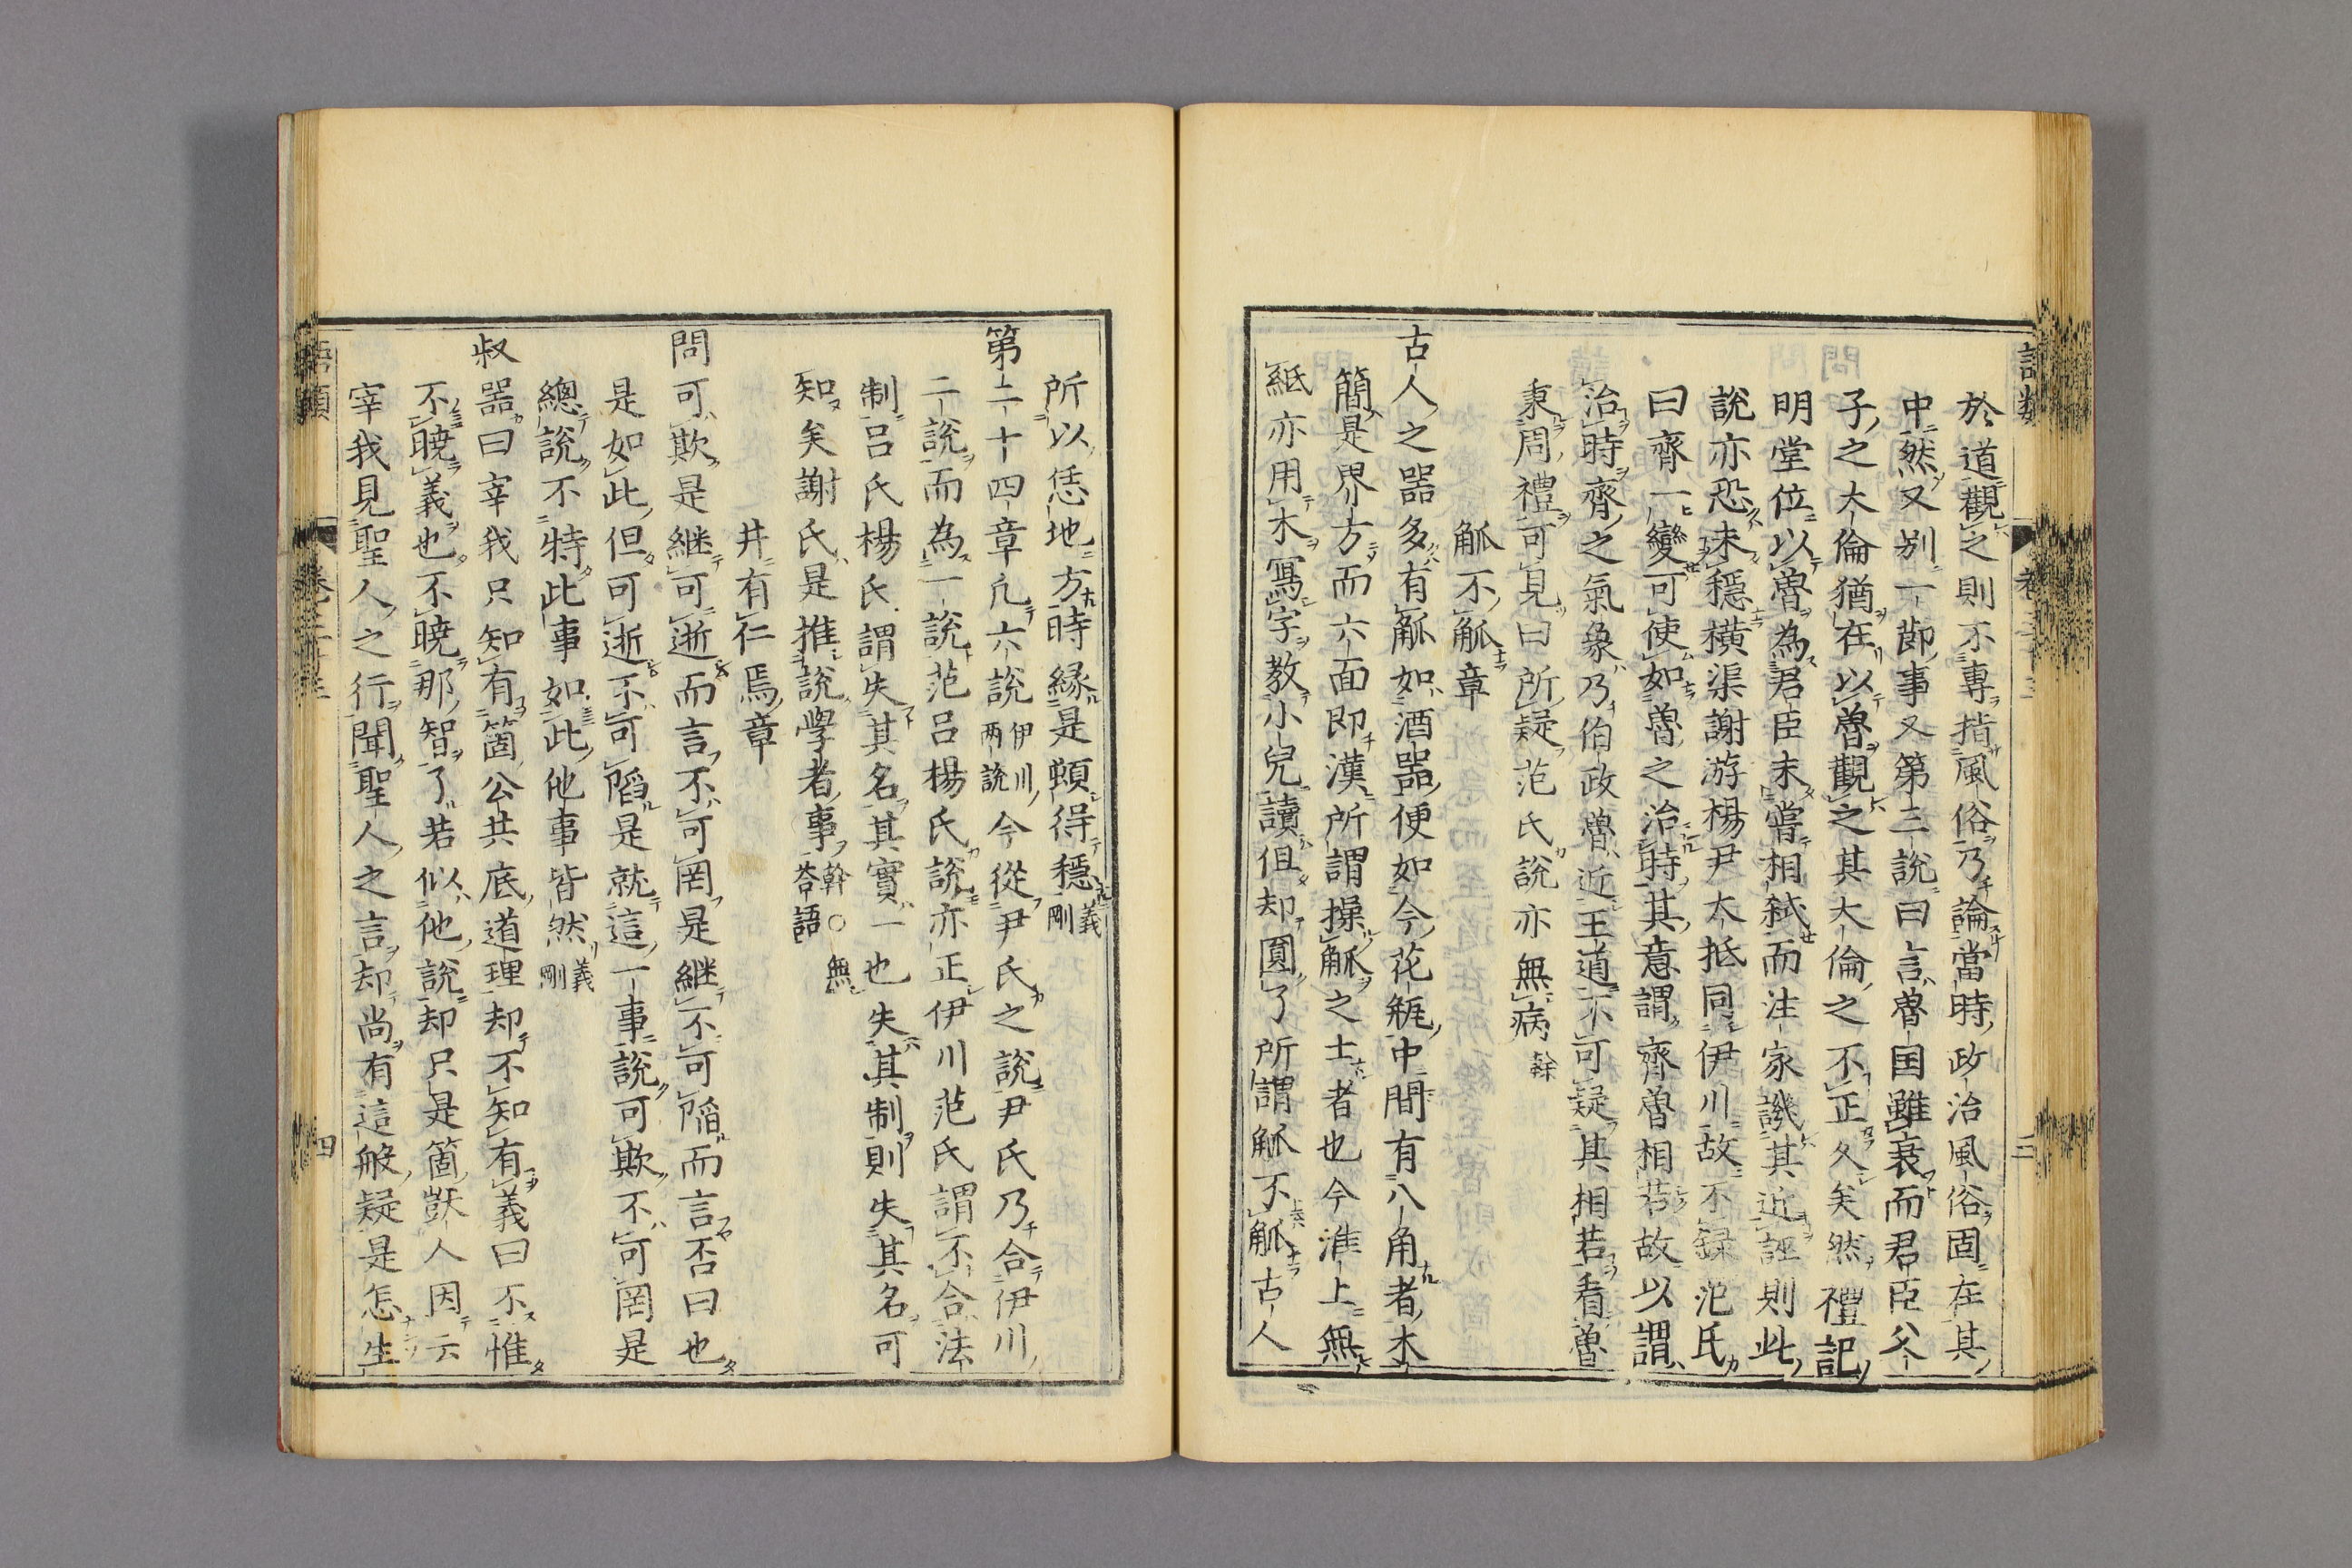 於道觀之則不專指風俗乃論當時政治風俗固在其
中然又別一節事又第三說曰言魯国雖衰而君臣父
子之大倫猶在以魯觀之其大倫之不正久矣然禮記
明堂位以魯為君臣未嘗相弑而注家譏其近誣則此
說亦恐未穩橫渠謝游楊尹大抵同伊川故不錄范氏
曰齊一變可使如魯之治時其意謂齊魯相若故以謂
治時齊之氣象乃伯政魯近王道不可疑其相若看魯
秉周禮可見曰所疑范氏說亦無病 榦
觚不觚章
古人之器多有觚如酒器便如今花瓶中間有八角者木
簡是界方而六面即漢所謂操觚之士者也今淮上無
紙亦用木寫字教小兒讀但却圓了所謂觚不觚古人
所以恁地方時緣是頓得穩 義剛
第二十四章凡六說 伊川兩說 今從尹氏之說尹氏乃合伊川
二說而為一說范呂楊氏說亦正伊川范氏謂不合法
制呂氏楊氏謂失其名其實一也失其制則失其名可
知矣謝氏是推說學者事 榦○無答語
井有仁焉章
問可欺是継可逝而言不可罔是継不可陷而言否曰也
是如此但可逝不可陷是就這一事說可欺不可罔是
總說不特此事如此他事皆然 義剛
叔器曰宰我只知有箇公共底道理却不知有義曰不惟
不曉義也不曉那智了若似他說却只是箇獃人因云
宰我見聖人之行聞聖人之言却尚有這般疑是怎生
語類
四